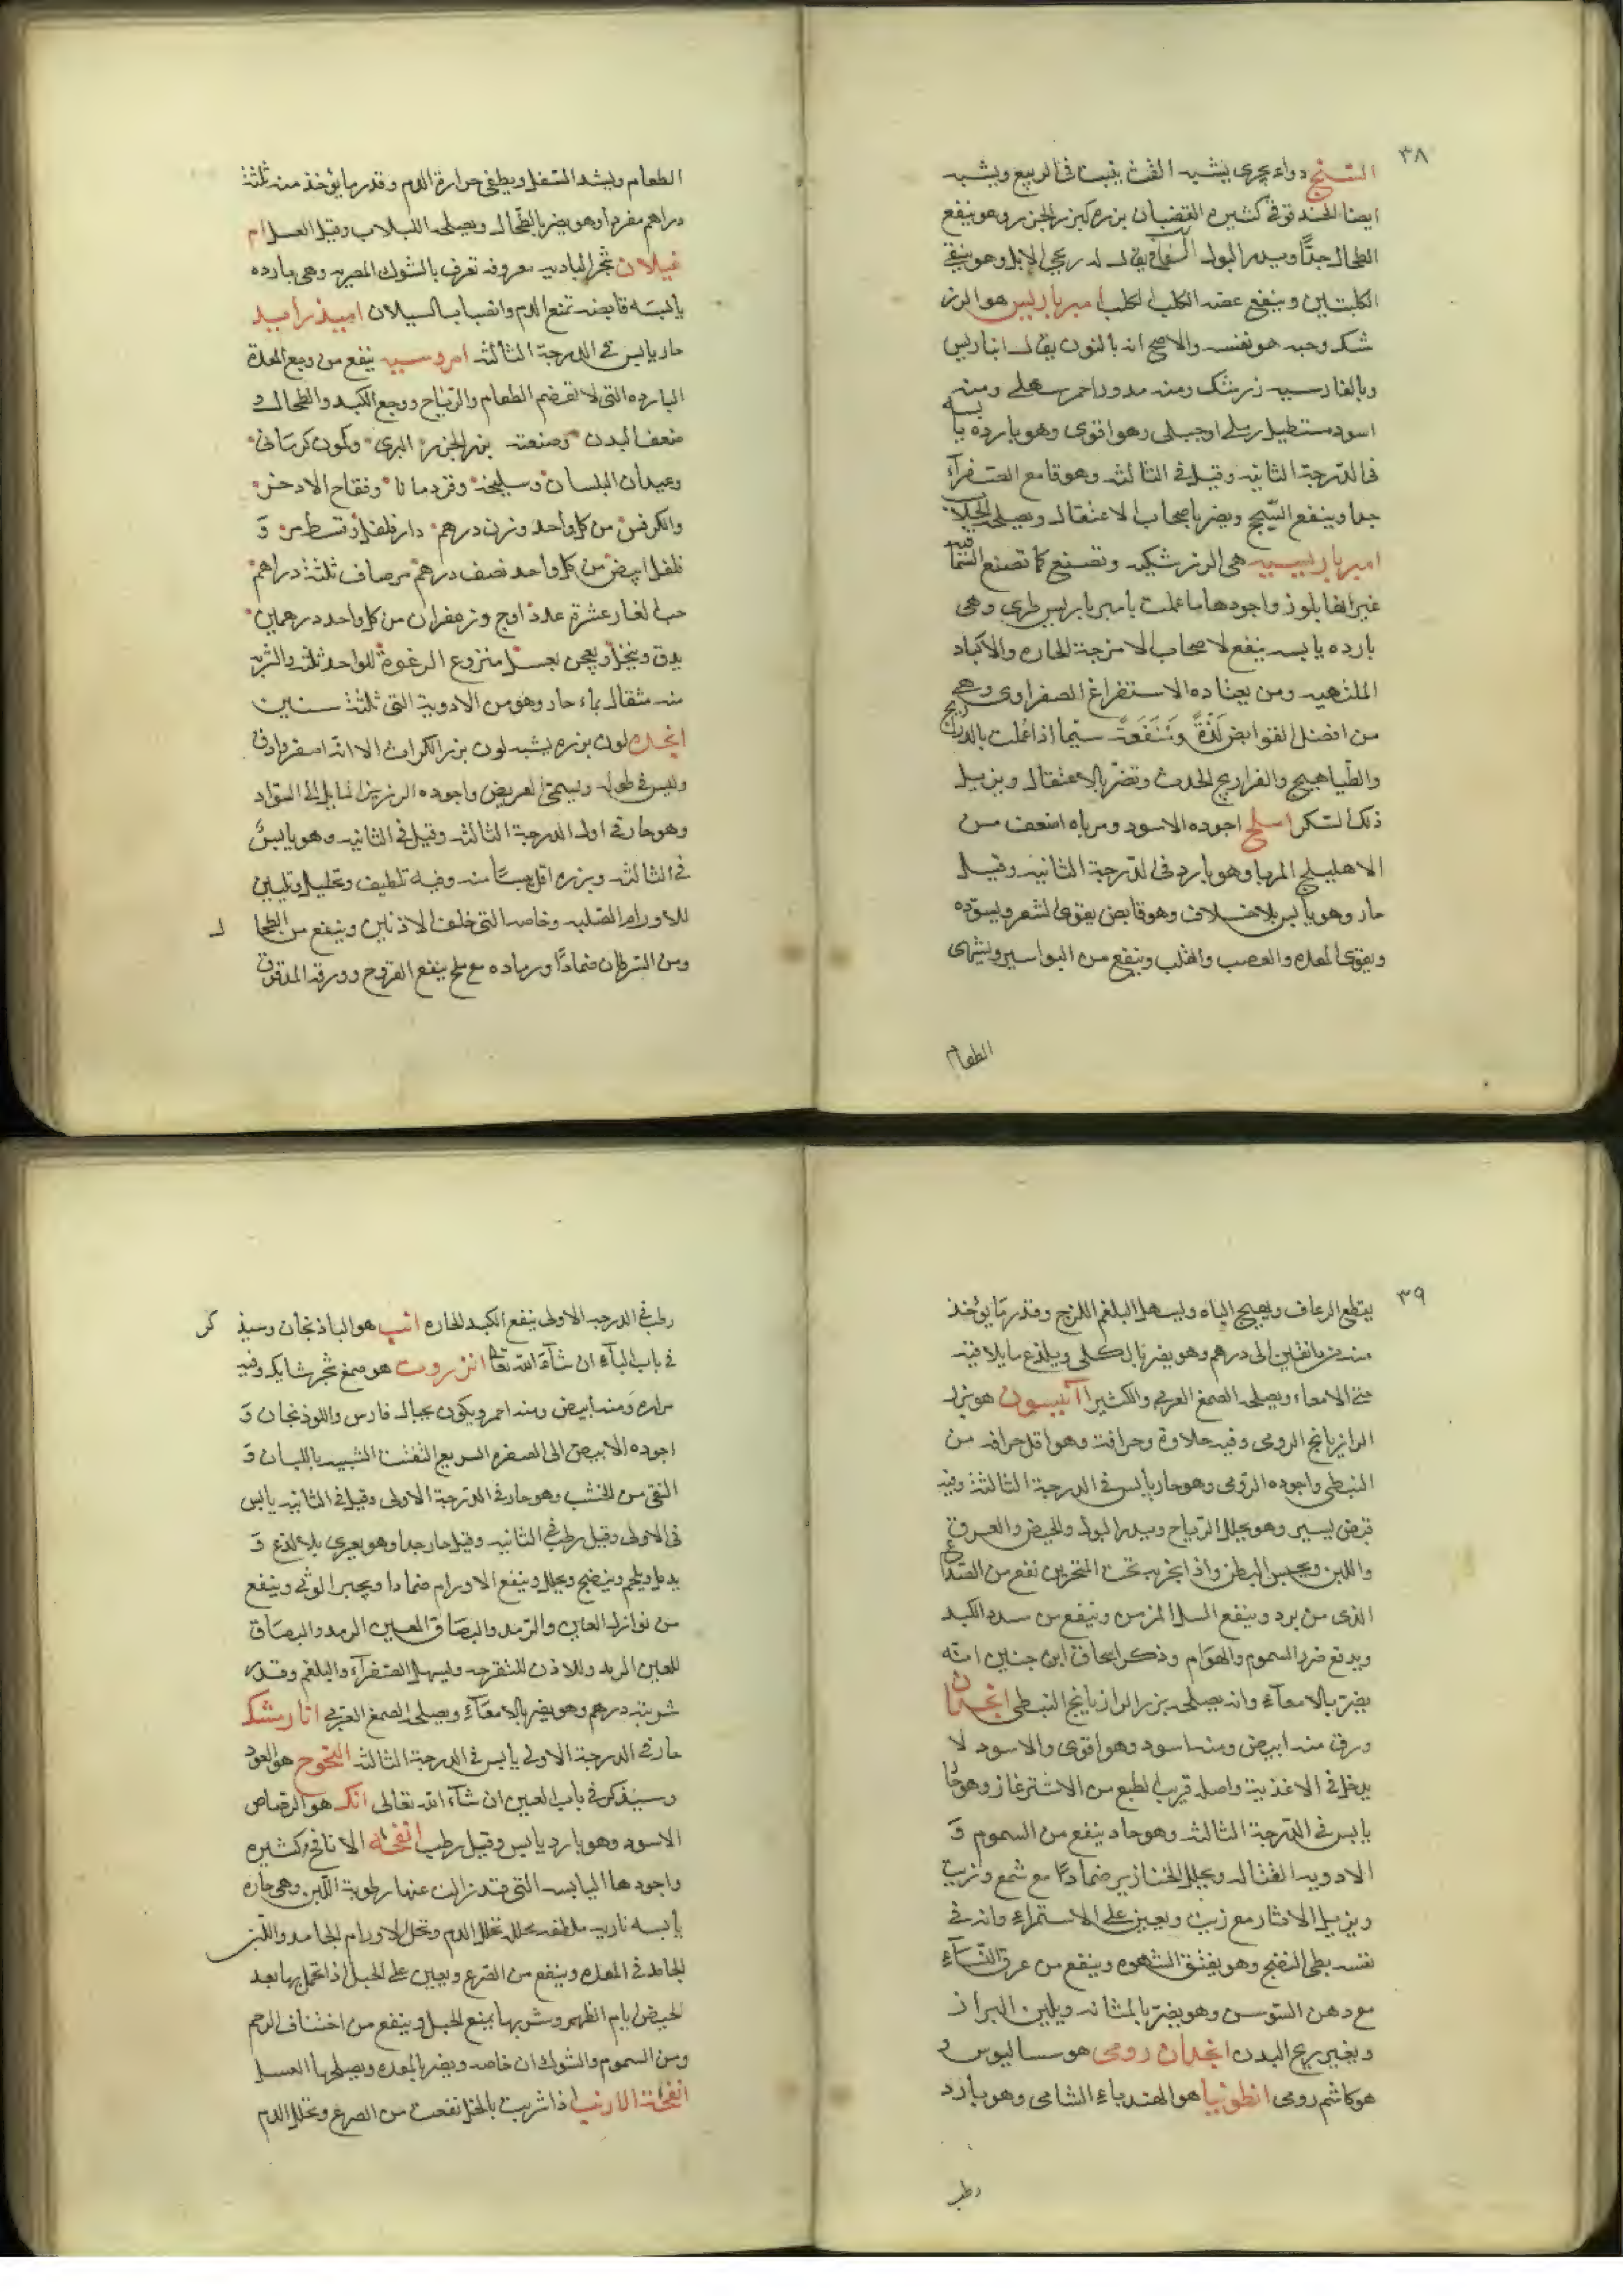 ٣٨
دواء يجرى يشبه القت ينبت فى الربيع ويشبه
ايضا الحندقوقى كثيره القضبان بزره كبزر الجزر وهو ينفع
الطحال جدًّا ويدر البول يقال له رعى الابل وهو ينقى
الكليتين وينفع عضه الكلب الكلب امبرباريس هو الزر
شك وحبه هو نفسه والاصح انه بالنون يقال انباريس
وبالفارسيه زرشك ومنه مدور احمر سهلى ومنه
اسود مستطيل رملى او جبلى وهو اقوى وهو بارده يابسه
فى الدرجة الثانيه وقيل فى الثالثه وهو قامع الصفرآء
جدا وينفع السحج ويضر باصحاب الاعتقال ويصلحه الجلاب
امبرباريسيه هى الزرشكيه وتصنع كما تصنع السماقيه
غير انها بلوز واجودها ما عملت بامبرباريس طرى وهى
بارده يابسه ينفع لاصحاب الامزجة الحاره والاكباد
الملتهبه ومن يعتاده الاستفراغ الصفراوى وهى
من افضل القوابض لذة ومنفعة سيما اذا عملت بالدراريج
والطياهيج والفراريج الحدث وتضر بالاعتقال ويزيل
ذلك السكر املج اجوده الاسود ومرباه اضعف من
الاهليلج المربا وهو بارد فى الدرجة الثانيه وقيل
حار وهو يابس بلا خلاف وهو قابض يقوى الشعر ويسوده
ويقوى المعده والعصب والقلب وينفع من البواسير ويشهى
الطعام
الطعام ويشد السفل ويطفى حرارة الدم وقدر ما يؤخذ منه ثلثة
دراهم مفردا وهو يضر بالطحال ويصلحه اللبلاب وقيل العسل ام
غيلان شجر البادية معروفه تعرف بالشوك المصريه وهى بارده
يابسه قابضه تمنع الدم وانصباب السيلان
حار يابس فى الدرجة الثالثه امروسيه ينفع من وجع المعدة
البارده التى لا تهضم الطعام والرياح ووجع الكبد والطحال و
ضعف البدن وصنعته بزر الجزر البرى وكمون كرمانى
وعيدان البلسان وسليخه وقردمانا وفقاح الاذخر
والكرفس من كل واحد وزن درهم دار فلفل وقسط مر و
فلفل ابيض من كل واحد نصف درهم مر صاف ثلثة دراهم
حب الغار عشرة عددا وج وزعفران من كل واحد درهمين
يدق وينخل ويعجن بعسل منزوع الرغوة للواحد ثلثه والشربه
منه مثقال بماء حار وهو من الادوية التى ثلثة سنين
انجره لون بزره يشبه لون بزر الكراث الا انه اصفر وادق
وليس فى طوله ويسمى القريض واجوده الرزين المايل الى السواد
وهو حار فى اول الدرجة الثالثه وقيل فى الثانيه وهو يابس
فى الثالثه وبزره اقل يبسًا منه وفيه تلطيف وتحليل وتليين
للاورام الصلبه وخاصه التى خلف الاذنين وينفع من الطحال
ومن السرطان ضمادًا ورماده مع ملح ينفع القروح وورقه المدقوق
٣٩
يقطع الرعاف ويهيج الباه ويسهل البلغم اللزج وقدر ما يؤخذ
منه من دانقين الى درهم وهو يضر بالكلى ويلذع ما يلاقيه
من الامعاء ويصلحه الصمغ العربى والكثيرا آنيسون هو بزر
الرازيانج الرومى وفيه حلاوة وحرافة وهو اقل حرافه من
النبطى واجوده الرومى وهو حار يابس فى الدرجة الثالثة وفيه
قبض يسير وهو يحلل الرياح ويدر البول والحيض والعرق
واللبن ويحبس البطن واذا بخر به تحت المنخرين نفع من الصداع
الذى من برد وينفع السل المزمن وينفع من سدد الكبد
ويدفع ضرر السموم والهوام وذكر اسحاق ابن حنين انه
يضر بالامعآء وانه يصلحه بزر الرازيانج النبطى انجدان
ورق منه ابيض ومنه اسود وهو اقوى والاسود لا
يدخل فى الاغذية واصله قريب الطبع من الاشترغاز وهو حار
يابس فى الدرجة الثالثه وهو حاد ينفع من السموم و
الادويه القتاله ويحلل الخنازير ضمادًا مع شمع وزيت
ويزيل الاثار مع زيت ويعين على الاستمراء وانه فى
نفسه بطى النضج وهو يفتق الشهوه وينفع من عرق النسآء
مع دهن السوسن وهو يضر بالمثانه ويلين البراز
ويغير ريح البدن انجدان رومى هو سساليوس و
هو كاشم رومى انطوبيا هو الهندباء الشامى وهو بارد
رطب
رطب فى الدرجه الاولى ينفع الكبد الحاره انب هو الباذنجان وسيذكر
فى باب البآء ان شآء الله تعالى انزروت هو صمغ شجر شايك وفيه
مراره ومنه ابيض ومنه احمر ويكون بجبال فارس واللوذنجان و
اجوده الابيض الى الصفره السريع التفتت الشبيه باللبان و
النقى من الخشب وهو حار فى الدرجة الاولى وقيل فى الثانيه يابس
فى الاولى وقيل رطب فى الثانيه وقيل حار جدا وهو يغرى بلا لذع و
يدمل ويلحم وينضج ويحلل وينفع الاورام ضمادا ويجبر الوثى وينفع
من نوازل العين والرمد والبصاق العين الرمد والبصاق
للعين الرمد وللاذن المتقرحه ويسهل الصفرآء والبلغم وقدر
شربته درهم وهو يضر بالامعآء ويصلحه الصمغ العربى انارمشك
حار فى الدرجة الاولى يابس فى الدرجة الثالثه النجوج هو العود
وسيذكر فى باب العين ان شآء الله تعالى انك هو الرصاص
الاسود وهو بارد يابس وقيل رطب انفحه الانافح كثيره
واجودها اليابسه التى قد زالت عنها رطوبة اللبن وهى حاره
يابسه ناريه ملطفه محلله تحلل الدم وتحلل الاورام الجامده واللبن
الجامد فى المعده وينفع من الصرع ويعين على الحبل اذا تحمل بها بعد
الحيض ايام الطهر وشربها يمنع الحبل وينفع من اختناق الرحم
ومن السموم والشوكران خاصه ويضر بالمعده ويصلحها العسل
انفحة الارنب اذا شربت بالخل نفعت من الصرع وتحلل الدم